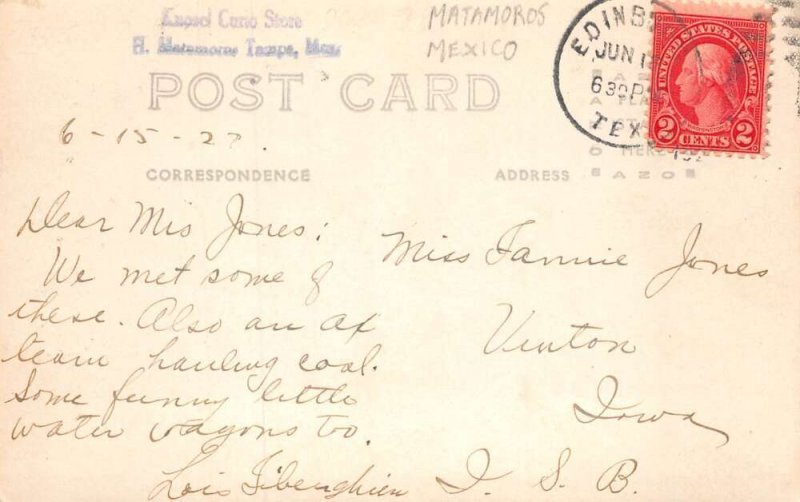 Curio Store
H. Matamoros Tamps, Mex.
MATAMOROS
MEXICO
EDINB
JUN 1
630P
TEX
UNITED STATES POSTAGE
2 CENTS 2
POST CARD
6-15-27.
CORRESPONDENCE
ADDRESS
AZOE
Dear Mis Jones:
We met some of
these. Also an ox
team hauling coal.
Some funny little
water wagons too.
Lois
Miss Fannie Jones
Vinton
Iowa
I. S. B.